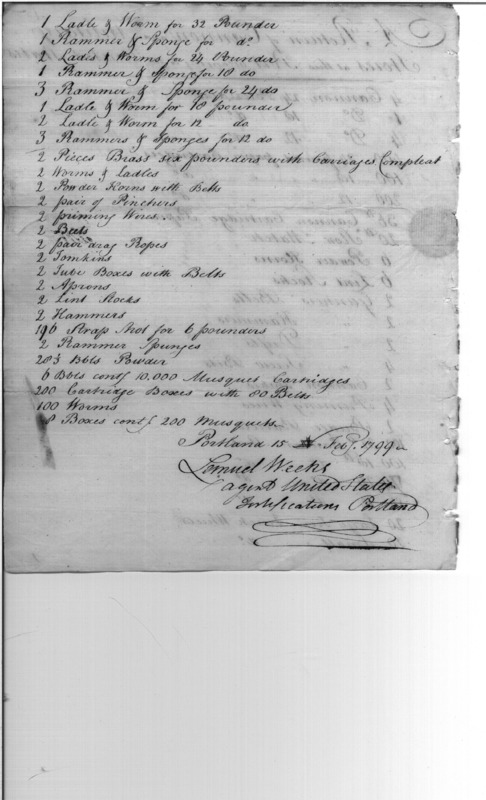 1 Ladle & Worm for 32 Pounder
1 Rammer & Sponge for do
2 Ladles & Worms for 24 Pounder
1 Rammer & Sponge for 18 do
3 Rammer & Sponge for 24 do
1 Ladle & Worm for 18 pounder
2 Ladle & Worm for 12 do
3 Rammers & Sponges for 12 do
2 Pieces Brass six pounders with Carriages Compleat
2 Worms & Ladles
2 Powder Horns with Belts
2 pair of Pinchers
2 priming Wires
2 Betts
2 pair drag Ropes
2 Tomkins
2 Tube Boxes with Belts
2 Aprons
2 Lint Stocks
2 Hammers
196 Strap Shot for 6 pounders
2 Rammer Spunges
283 Bbls Powder
6 Bbls contg 10.000 Musquet Cartridges
200 Cartridge Boxes with 80 Belts
100 Worms
8 Boxes contg 200 Musquets
Portland 15 Feby. 1799
Lemuel Weeks
agent United States
Fortifications Portland